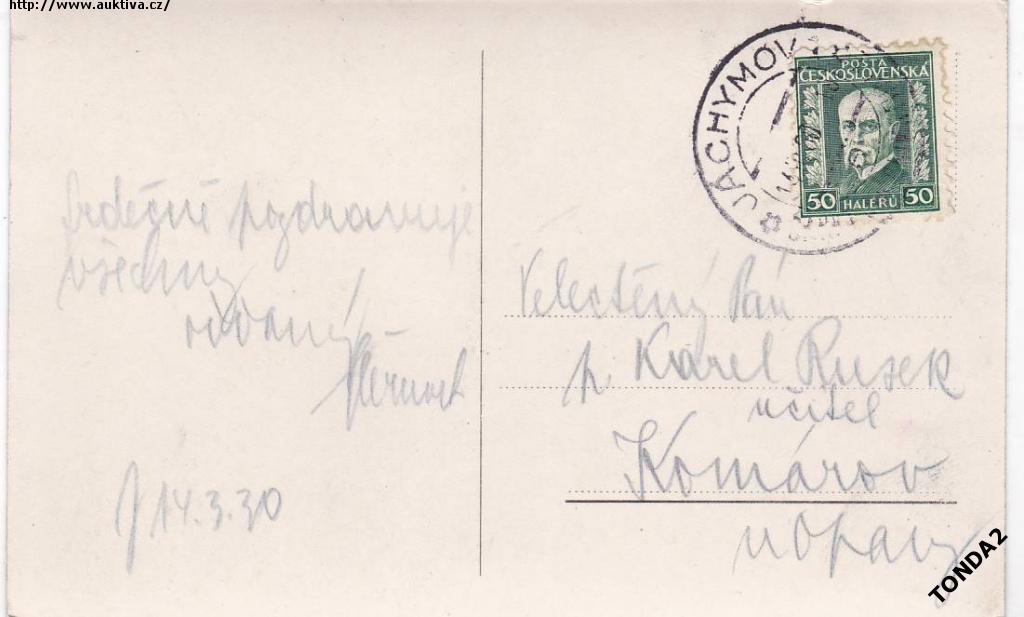 http://www.auktiva.cz/
JÁCHYMOV
POSTA
ČESKOSLOVENSKÁ
50 HALÉRŮ 50
Srdečně pozdravuje
všechny
oddaný
J 14.3.30
Velectěný Pán
p. Karel Rusek
učitel
Komárov
u Opavy
TONDA2